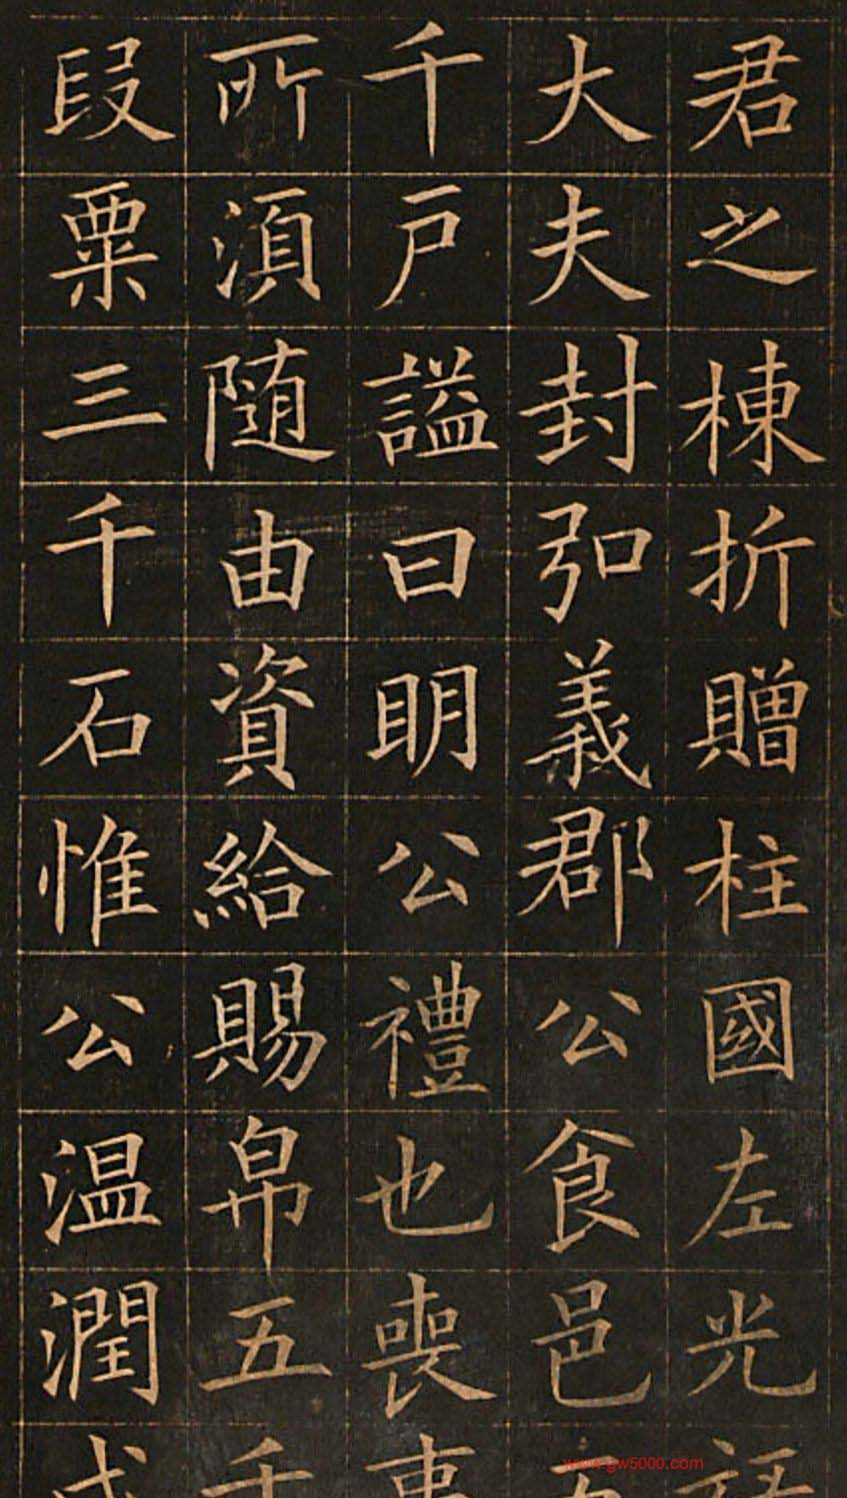 君之棟折贈柱國左光
大夫封弘義郡公食邑
千户謚曰明公禮也喪
所湏随由資給賜帛五
段粟三千石惟公温潤
www.gw5000.com